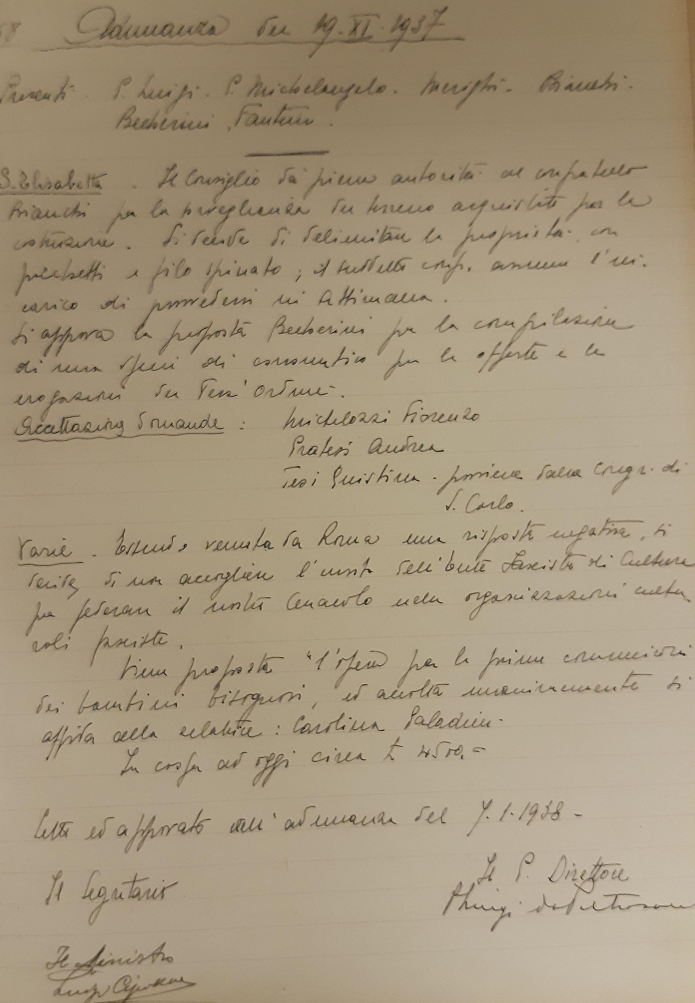 58 Adunanza del 19.XI.1937
Presenti. P. Luigi. P. Michelangelo. Merighi. Bianchi.
Becherini, Fantini.
S. Elisabetta. Il Consiglio dà piena autorità al confratello
Bianchi per la sorveglianza del terreno acquistato per la
costruzione. Si decide di delimitare la proprietà con
picchetti e filo spinato; il suddetto conf. assume l'in-
carico di provvedersi in settimana.
Si approva la proposta Becherini per la compilazione
di una specie di consuntivo per le offerte e le
erogazioni del Terz'Ordine.
Accettazione domande: Michelozzi Fiorenzo
Pratesi Andrea
Tesi Giustina. proviene dalla Congr. di
S. Carlo.
Varie. Essendo venuta da Roma una risposta negativa, si
decide di non accogliere l'invito dell'Ente Fascista di Cultura
per federare il nostro Cenacolo nelle organizzazioni cultu
rali fasciste.
Viene proposta "l'opera per le prime comunioni
dei bambini bisognosi, ed accolta unanimemente si
affida alla relatrice: Carolina
In cassa ad oggi circa £
Letto ed approvato nell'adunanza del 7.1.1938-
Il Segretario
Il P. Direttore
P. Luigi da
Il Ministro
Luigi